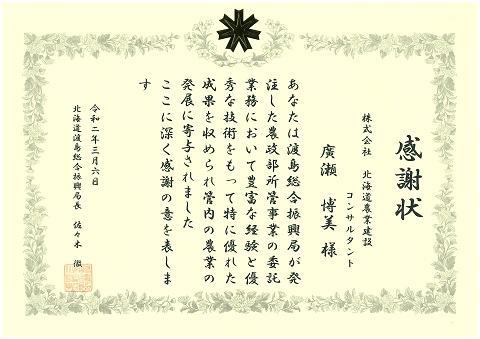 感謝状
株式会社 北海道農業建設
コンサルタント
廣瀬 博美 様
あなたは渡島総合振興局が発
注した農政部所管事業の委託
業務において豊富な経験と優
秀な技術をもって特に優れた
成果を収められ管内の農業の
発展に寄与されました
ここに深く感謝の意を表しま
す
令和二年三月六日
北海道渡島総合振興局長 佐々木 徹